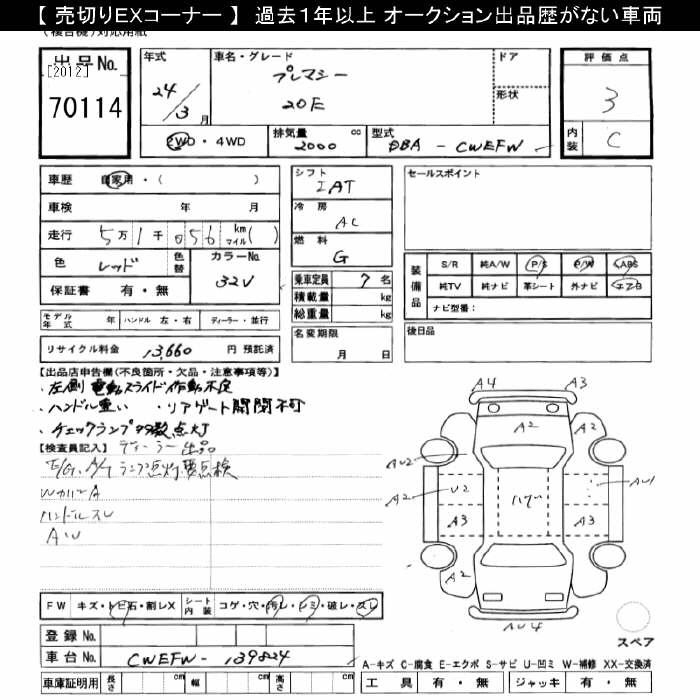 【 売切りEXコーナー 】 過去1年以上 オークション出品歴がない車両
出品No.
[2012]
70114
年式
24/3月
車名・グレード
プレマシー
20E
ドア
形状
評価点
3
内装 C
2WD・4WD
排気量 2000 cc
型式 DBA - CWEFW
車歴 自家用・( )
車検 年 月
走行 5万1千056 km マイル( )
色 レッド 色替
カラーNo. 32V
保証書 有・無
シフト
IAT
冷房
AC
燃料
G
乗車定員 7名
積載量 kg
総重量 kg
名変期限
月 日
セールスポイント
装備品
S/R 純A/W P/S P/W ABS
純TV 純ナビ 革シート 外ナビ エアB
ナビ型番:
後日品
モデル年式 年 ハンドル 左・右 ディーラー・並行
リサイクル料金 13,660 円 預託済
【出品店申告欄(不良箇所・欠品・注意事項等)】
・左側 電動スライド作動不良
・ハンドル重い ・リアゲート開閉不可
・チェックランプ多数点灯
【検査員記入】 ディーラー出品
E/G、A/Tランプ点灯要点検
WカバーA
ハンドルスレ
AW
A4
A3
A2
A2
AU2
A2
U2
ハゲ
AU1
A3
A3
A2
A2
AU4
スペア
FW キズ・トビ石・割レX
シート内装 コゲ・穴・汚レ・シミ・破レ・スレ
登録No.
車台No. CWEFW-139824
車庫証明用 長さ cm 幅 cm 高さ cm
A-キズ C-腐食 E-エクボ S-サビ U-凹ミ W-補修 XX-交換済
工具 有・無 ジャッキ 有・無